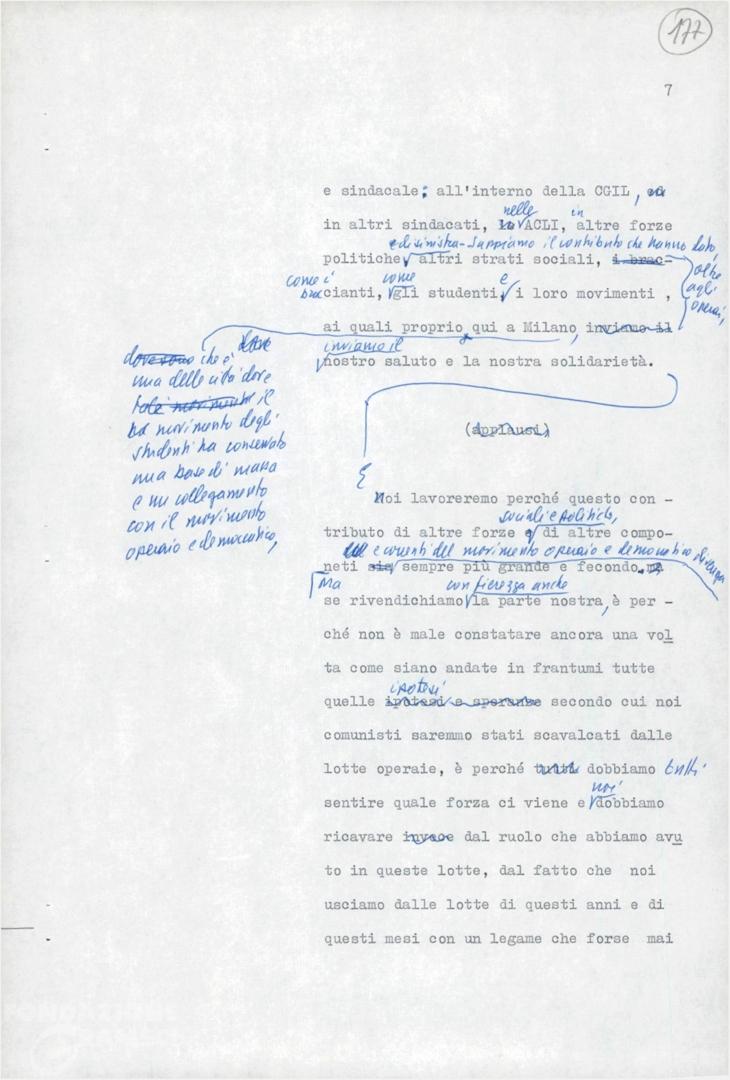 177
7
e sindacale; all'interno della CGIL,
nelle in
in altri sindacati, le ACLI, altre forze
e di sinistra - Sappiamo il contributo che hanno dato,
politiche altri strati sociali, i brac-
oltre
agli
operai,
come i come e
braccianti, gli studenti, i loro movimenti,
ai quali proprio qui a Milano, inviamo il
inviamo il
nostro saluto e la nostra solidarietà.
dove sono che è dove
una delle città dove
tale movimento il
movimento degli
studenti ha conservato
una base di massa
e un collegamento
con il movimento
operaio e democratico,
(applausi)
E
Noi lavoreremo perché questo con -
sociali e politiche,
tributo di altre forze e di altre compo-
e correnti del movimento operaio e democratico divenga
neti sia sempre più grande e fecondo, ma
Ma con fierezza anche
se rivendichiamo la parte nostra, è per -
ché non è male constatare ancora una vol
ta come siano andate in frantumi tutte
ipotesi
quelle ipotesi e speranze secondo cui noi
comunisti saremmo stati scavalcati dalle
lotte operaie, è perché tutti dobbiamo tutti
noi
sentire quale forza ci viene e dobbiamo
ricavare invece dal ruolo che abbiamo avu
to in queste lotte, dal fatto che noi
usciamo dalle lotte di questi anni e di
questi mesi con un legame che forse mai
FONDAZIONE